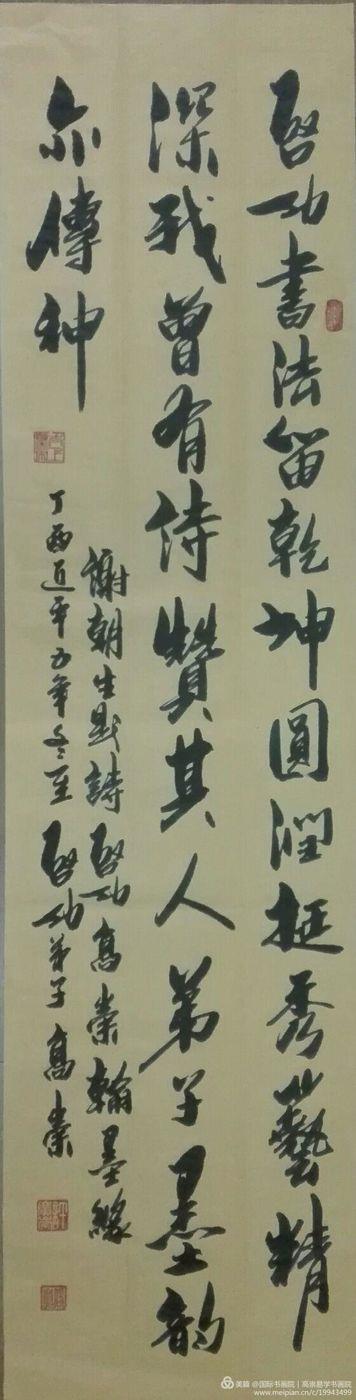 啓功書法笛乾坤圓潤挺秀藝精
深我曾有诗贊其人弟子墨韵
亦傳神
謝朝生先詩啓功高崇翰墨緣
丁酉近平五年冬至啓功弟子高崇
美篇 @国际书画院 | 高崇易学书画院
www.meipian.cn/c/19943499